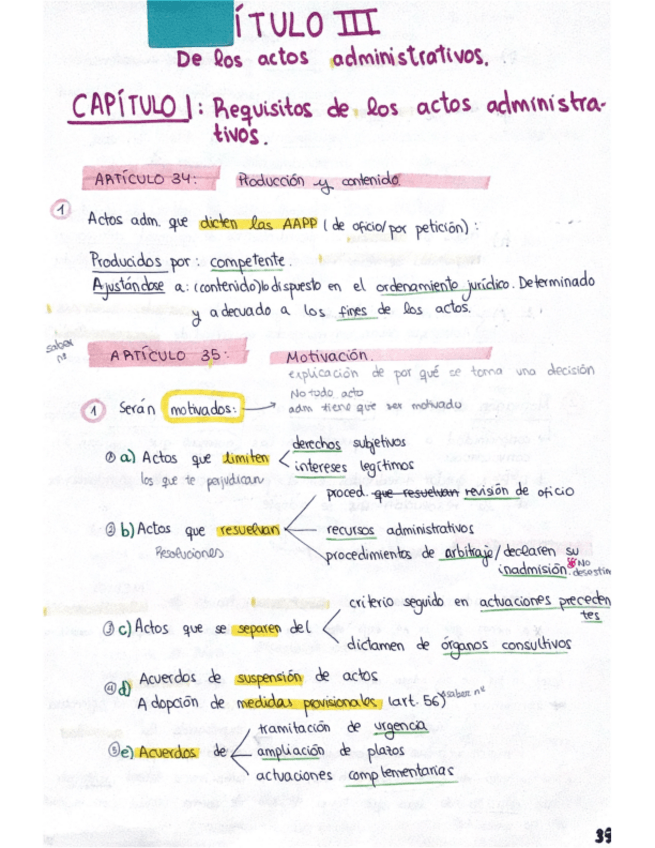 ÍTULO III
De los actos administrativos.
CAPÍTULO 1: Requisitos de los actos administra-
tivos.
ARTÍCULO 34: Producción y contenido.
1 Actos adm. que dicten las AAPP (de oficio/por petición):
Producidos por: competente.
Ajustándose a: (contenido) lo dispuesto en el ordenamiento jurídico. Determinado
y adecuado a los fines de los actos.
saber nº
ARTÍCULO 35: Motivación.
explicación de por qué se toma una decisión
No todo acto
1 Serán motivados: → adm tiene que ser motivado
① a) Actos que limiten < derechos subjetivos
intereses legítimos
los que te perjudican
proced. que resuelvan revisión de oficio
② b) Actos que resuelvan recursos administrativos
Resoluciones
procedimientos de arbitraje/declaren su
inadmisión. * No desestim
③ c) Actos que se separen del < criterio seguido en actuaciones preceden
tes
dictamen de órganos consultivos
④ d) Acuerdos de suspensión de actos
Adopción de medidas provisionales (art. 56) * saber nº
tramitación de urgencia
⑤ e) Acuerdos de ampliación de plazos
actuaciones complementarias
39